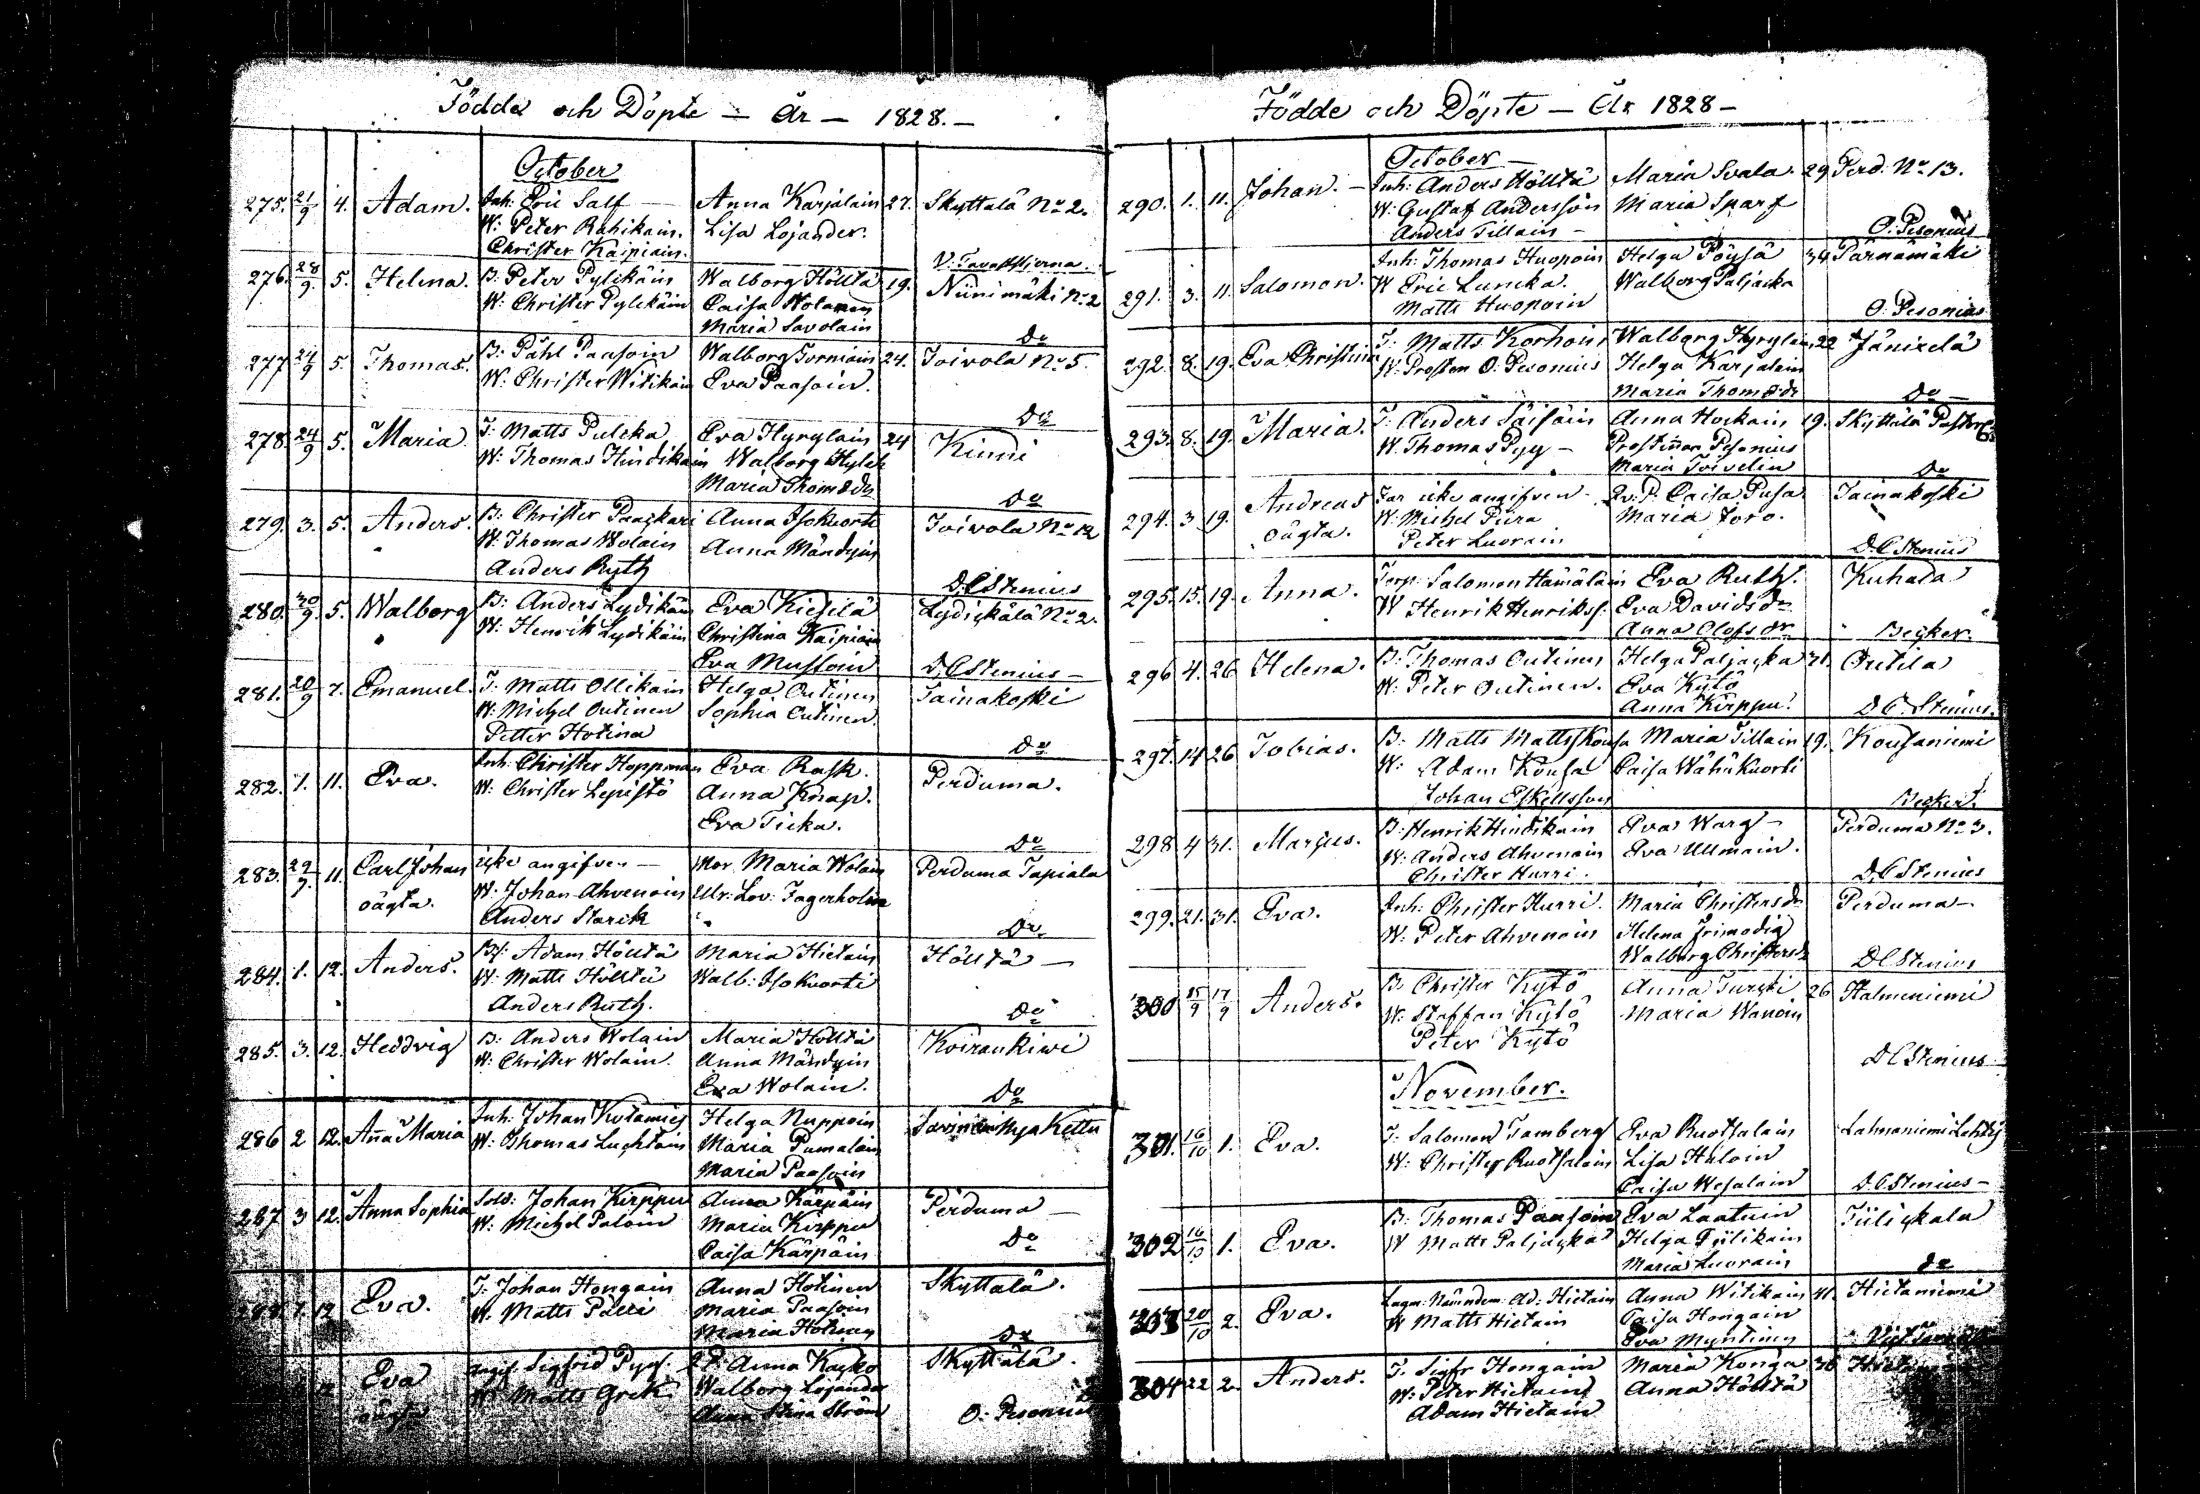 Födde och Döpte — År — 1828. —
October
275. 21/9 4. Adam. Inh: Eric Salf — Anna Karjalain 27. Skyttälä No 2.
W: Peter Rahikain. Lisa Lojander.
Christer Kaipiain. V: Tavaststjerna.
276. 28/9. 5. Helena. B: Peter Pylckäin Walborg Hölttä 19. Niinimäki No 2
W: Christer Pylckäin Caisa Wolainen
Maria Savolain Do
277. 24/9 5. Thomas. B: Påhl Paasoin Walborg Torniain 24. Toivola No 5.
W: Christer Witikain Eva Paasoin.
Do
278. 24/9 5. Maria. T: Matts Pulcka Eva Hyrylain 24 Kinni
W: Thomas Hindikain Walborg Hylck
Maria Thomsdr Do
279. 3. 5. Anders. B: Christer Paackari Anna Isokuorti Toivola No 12
W: Thomas Wolain Anna Mändyin
Anders Ruth D. C. Stenius
280. 30/9. 5. Walborg B: Anders Lydikäin Eva Kiesilä Lydickälä No 2.
W: Henrik Lydikäin Christina Kaipiain
Eva Mustoin D. C. Stenius —
281. 20/9 7. Emanuel. T: Matts Ollikain Helga Outinen Tainakoski
W: Michel Outinen Sophia Outinen.
Petter Hotina Do
282. 1. 11. Eva. Inh: Christer Hoppman Eva Rask. Perduma.
W: Christer Lepistö Anna Knap.
Eva Ticka. Do
283. 29/9. 11. Carl Johan icke angifven — Mor. Maria Wolain Perduma Tapiala
oägta. W. Johan Ahvenain Ulr: Lov: Fagerholm
Anders Starck Do
284. 1. 12. Anders. B: Adam Hölttä Maria Hietain Hölttä —
W: Matts Hölttä Walb: Isokuorti
Anders Ruth. Do
285. 3. 12. Heddvig B: Anders Wolain Maria Hölttä Koirankivi
W: Christer Wolain. Anna Mändyin
Eva Wolain. Do
286 2 12. Anna Maria Inh: Johan Kotamies Helga Nuppoin
W: Thomas Luchtain Maria Pumalain
Maria Paasoin
287 3 12. Anna Sophia Sold: Johan Kirppu Anna Kärpäin Perduma —
W: Michel Paloin Maria Kirppu Do
Caisa Kärpäin
288 12 Eva. T: Johan Hongain Anna Hotinen Skyttälä.
W. Matts Pälli Maria Paasoin
Maria Hotinen Do
12 Eva Sigfrid Pyy Anna Kaycko Skyttälä.
oägta W: Matts Grek Walborg Lojander
Anna Stina Ström O: Pesonius
Födde och Döpte — År 1828 —
October —
290. 1. 11. Johan. — Inh: Anders Hölttä Maria Svala. 29 Perd: No 13.
W: Gustaf Andersson Maria Sparf
Anders Tillain — O. Pesonius
291. 3. 11. Salomon. Inh: Thomas Huopoin Helga Pöysä 34 Pärnämäki
W Eric Luncka. Walborg Paljacka
Matts Huopoin O. Pesonius
292. 8. 19. Eva Christina T: Matts Korhoin Walborg Hyrylein 22 Jänicelä
W: Prosten O. Pesonius Helga Karjalain
Maria Thomsdr Do —
293. 8. 19. Maria. T: Anders Säisäin Anna Hockain 19. Skyttälä
W. Thomas Pyy — Prostinnan Pesonius
Maria Toivelin Do
294. 3 19. Andreas Far icke angifven — Qv: P. Caisa Pusa Tainakoski
oägta. W: Michel Pura Maria Toro.
Peter Luorain D. C. Stenius
295. 15. 19. Anna. Torp: Salomon Hämäläin Eva Ruth. Kuhala
W Henrik Henrikss: Eva Davidsdr
Anna Olofsdr Becker.
296 4. 26 Helena. B: Thomas Outinen Helga Paljacka 31. Outila
W: Peter Outinen. Eva Kytö
Anna Kirppu. D. C. Stenius.
297. 14 26 Tobias. B: Matts Mattss Kousa Maria Tillain 19. Kousaniemi
W: Adam Kousa Caisa Wähäkuorti
Johan Eskellsson Becker.
298 4 31. Marcus. B: Henrik Hindikain Eva Warg — Perduma No 3.
W: Anders Ahvenain Eva Ullmain.
Christer Hurri. D. C. Stenius
299. 21. 31. Eva. Inh: Christer Hurri. Maria Christersdr Perduma —
W: Peter Ahvenain Helena Frimodig
Walborg Christersdr D C Stenius
300 15/9 17/9 Anders. B: Christer Kytö Anna Turcki 26 Halmeniemi
W: Staffan Kytö Maria Wanoin
Peter Kytö
D C Stenius
November.
301. 16/10 1. Eva. T: Salomon Tamberg Eva Ruotsalain
W: Christer Ruotsalain Lisa Haloin
Caisa Wesalain D. C. Stenius —
302 16/10 1. Eva. B: Thomas Paasoin Eva Laatuin Tiilickala
W Matts Paljacka Helga Tiilikain
Maria Luorain Do
303 20/10 2. Eva. Lagm: Nämndem: Ad: Hietain Anna Witikain 41. Hietaniemi
W Matts Hietain Caisa Hongain
Eva Myntinen
304 22 2. Anders. T: Sigfr Hongain Maria Konga 36
W: Peter Hietain Anna Hölttä
Adam Hietain